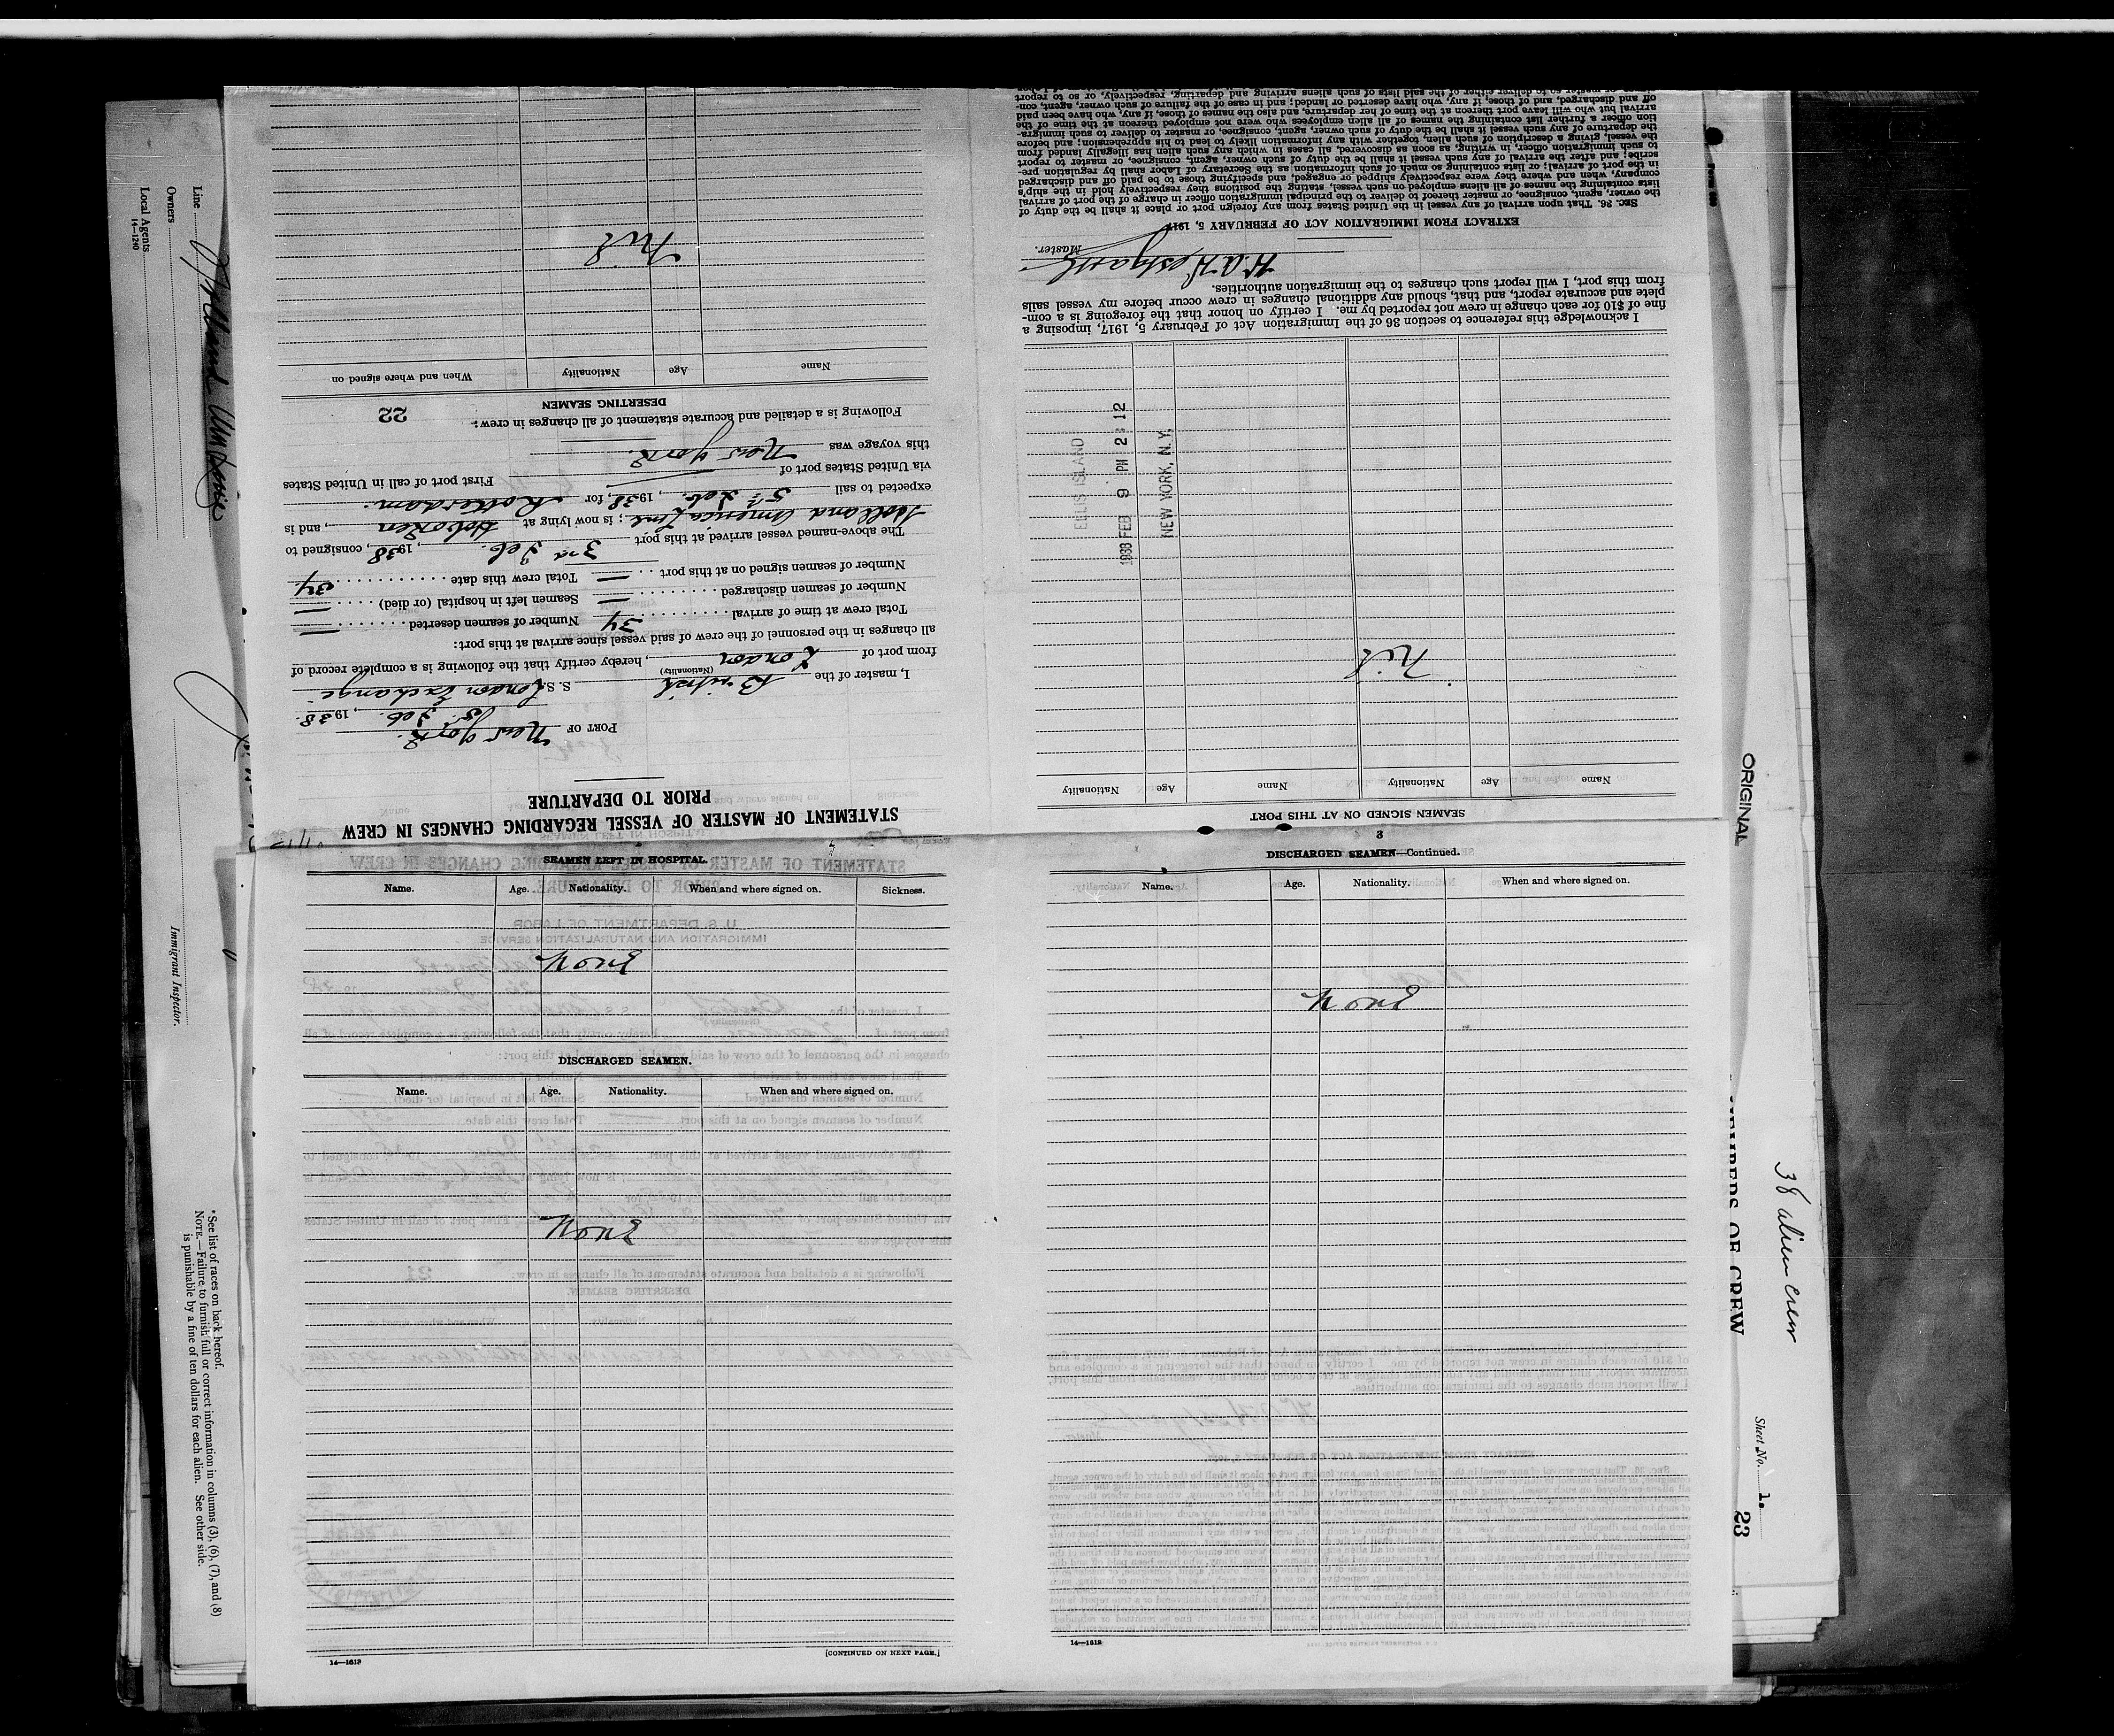 STATEMENT OF MASTER OF VESSEL REGARDING CHANGES IN CREW
PRIOR TO DEPARTURE
PORT OF New York.
5th Feb. , 1938.
I, master of the British S. S. London Exchange
(Nationality)
from port of London , hereby certify that the following is a complete record of
all changes in the personnel of the crew of said vessel since arrival at this port:
Total crew at time of arrival 34 Number of seamen deserted —
Number of seamen discharged — Seamen left in hospital (or died) —
Number of seamen signed on at this port — Total crew this date 34.
The above-named vessel arrived at this port 3rd Feb. , 1938, consigned to
Holland America Line ; is now lying at Hoboken , and is
expected to sail 5th Feb. , 1938, for Rotterdam.
via United States port of First port of call in United States
this voyage was New York.
Following is a detailed and accurate statement of all changes in crew:
22
DESERTING SEAMEN
Name Age Nationality When and where signed on
Nil
3
SEAMEN SIGNED ON AT THIS PORT
Name Age Nationality Name Age Nationality
Nil
ELLIS ISLAND
1938 FEB 9 PM 2 12
NEW YORK, N. Y.
I acknowledge this reference to section 36 of the Immigration Act of February 5, 1917, imposing a
fine of $10 for each change in crew not reported by me. I certify on honor that the foregoing is a com-
plete and accurate report, and that, should any additional changes in crew occur before my vessel sails
from this port, I will report such changes to the immigration authorities.
Master.
EXTRACT FROM IMMIGRATION ACT OF FEBRUARY 5, 1917
SEC. 36. That upon arrival of any vessel in the United States from any foreign port or place it shall be the duty of
the owner, agent, consignee, or master thereof to deliver to the principal immigration officer in charge of the port of arrival
lists containing the names of all aliens employed on such vessel, stating the positions they respectively hold in the ship's
company, when and where they were respectively shipped or engaged, and specifying those to be paid off and discharged
in the port of arrival; or lists containing so much of such information as the Secretary of Labor shall by regulation pre-
scribe; and after the arrival of any such vessel it shall be the duty of such owner, agent, consignee, or master to report
to such immigration officer, in writing, as soon as discovered, all cases in which any such alien has illegally landed from
the vessel, giving a description of such alien, together with any information likely to lead to his apprehension; and before
the departure of any such vessel it shall be the duty of such owner, agent, consignee, or master to deliver to such immigra-
tion officer a further list containing the names of all alien employees who were not employed thereon at the time of the
arrival but who will leave port thereon at the time of her departure, and also the names of those, if any, who have been paid
off and discharged, and of those, if any, who have deserted or landed; and in case of the failure of such owner, agent, con-
signee, or master so to deliver either of the said lists of such aliens arriving and departing, respectively, or so to report
SEAMEN LEFT IN HOSPITAL.
Name. Age. Nationality. When and where signed on. Sickness.
None
DISCHARGED SEAMEN.
Name. Age. Nationality. When and where signed on.
None
14—1613
[CONTINUED ON NEXT PAGE.]
DISCHARGED SEAMEN—Continued.
Name. Age. Nationality. When and where signed on.
None
14—1613
Line
Owners
Local Agents
14—1240
Immigrant Inspector.
*See list of races on back hereof.
NOTE.—Failure to furnish full or correct information in columns (3), (6), (7), and (8)
is punishable by a fine of ten dollars for each alien. See other side.
ORIGINAL
MEMBERS OF CREW
38 alien crew
Sheet No. 1.
23